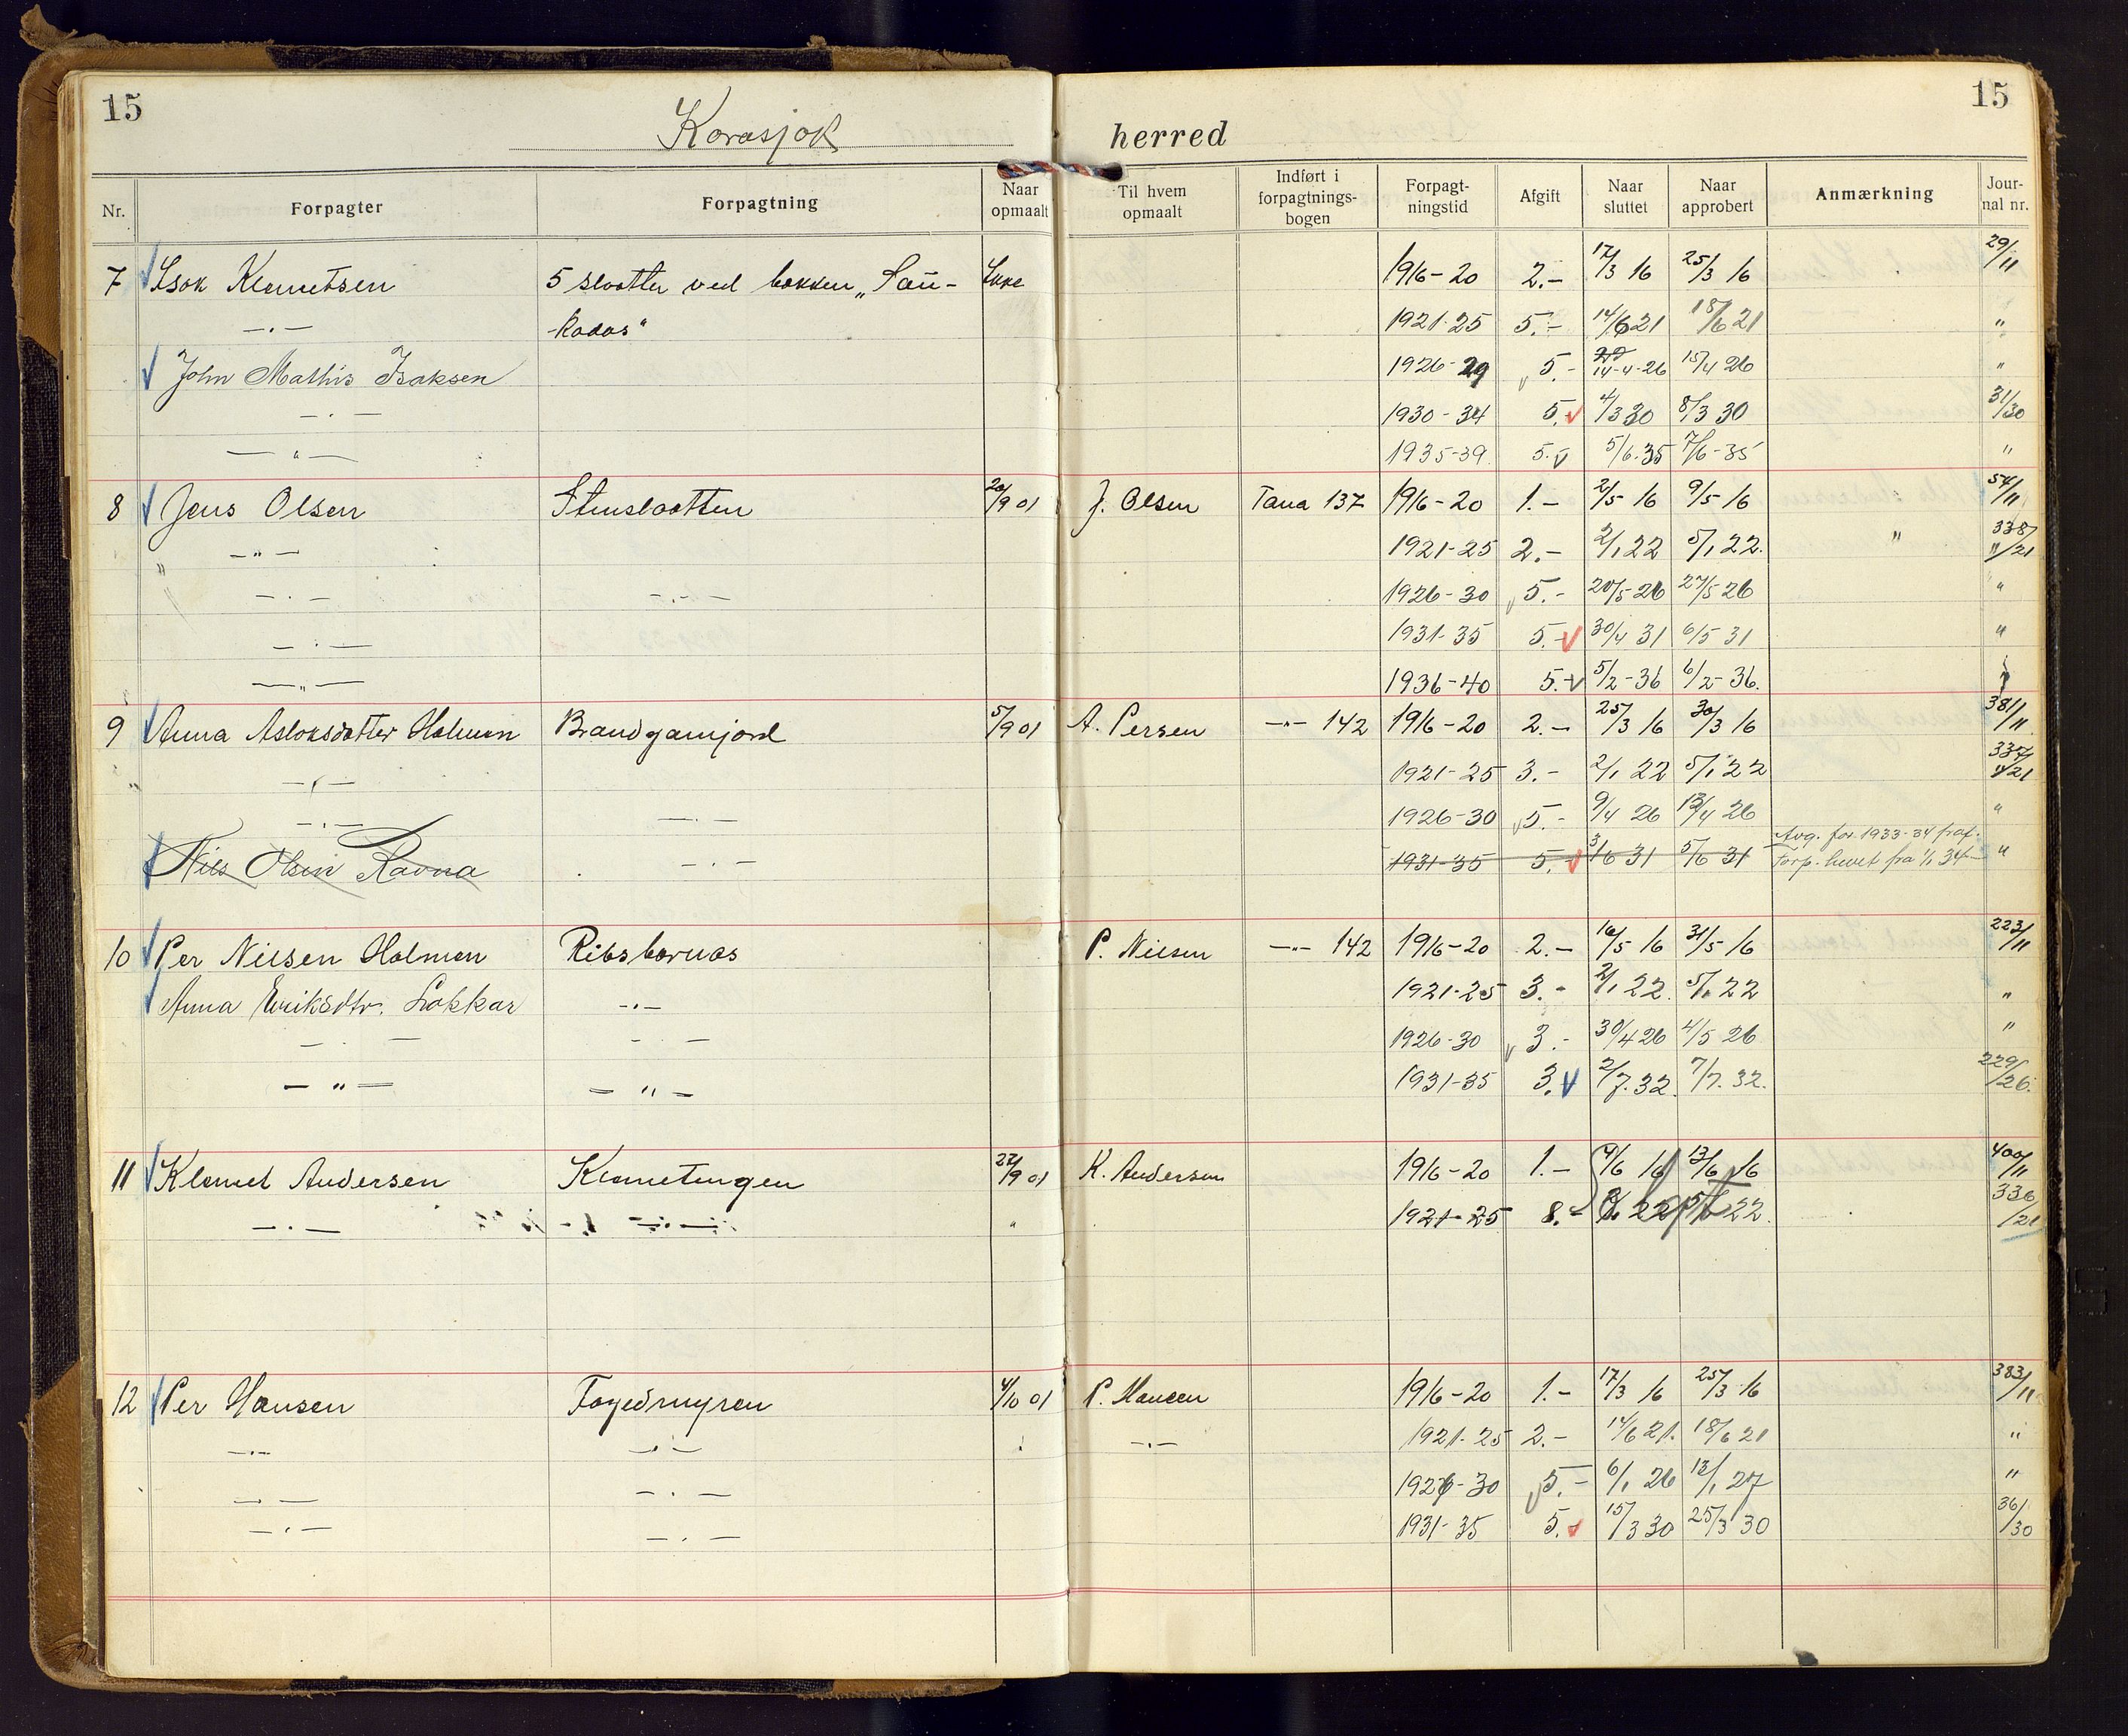 15 Karasjok herred 15
Nr. Forpagter Forpagtning Naar opmaalt Til hvem opmaalt Indført i forpagtnings-bogen Forpagt-ningstid Afgift Naar sluttet Naar approbert Anmærkning Jour-nal nr.
7 Isak Klemetsen 5 slaatter ved bækken „ Ikke 1916-20 2.- 17/3 16 25/3 16 29/11
—„— 1921-25 5.- 14/6 21 18/6 21 "
John Mathis Isaksen 1926-29 5.- 14-4-26 15/4 26 "
—„— 1930-34 5. 4/3 30 8/3 30 31/30
—„— 1935-39. 5. 5/6-35 7/6-35 "
8 Jens Olsen Stenslaatten 20/9 01 J. Olsen Tana 137 1916-20 1.- 2/5 16 9/5 16 54/11
" —„— 1921-25 2.- 2/1 22 5/1 22. " 338/21
—„— —„— 1926-30 5.- 20/5-26 27/5 26 "
—„— 1931-35 5.- 30/4 31 6/5 31 "
—„— 1936-40 5.- 5/2-36 6/2-36.
9 Anna Aslaksdatter Holmen Brandgamjord 5/9 01 A. Persen —„— 142 1916-20 2.- 25/3 16 30/3 16 381/11
" —„— 1921-25 3.- 2/1 22 5/1 22 337/21
—„— —„— 1926-30 5.- 9/4 26 13/4 26 "
Nils Olsen Ravna —„— 1931-35 5.- 3/6 31 5/6 31 Avg. for 1933-34 fraf. "
Forp. hevet fra 1/1 34
10 Per Nilsen Holmen P. Nilsen —„— 142 1916-20 2.- 16/5 16 31/5 16 223/11
Anna Eriksdtr. —„— 1921-25 3.- 2/1 22. 5/1 22 "
—„— —„— 1926-30 3.- 30/4 26 4/5 26 "
—„— —„— 1931-35 3. 2/7. 32. 7/7. 32. 229/26.
11 Klemet Andersen Klemetengen 27/9 01 K. Andersen 1916-20 1.- 9/6 16 13/6 16 400/11
—„— —„— " 1921-25 8.- 22 22. 336/21
12 Per Hansen Fogedmyren 4/10 01 P. Hansen 1916-20 1.- 17/3 16 25/3 16 383/11
—„— —„— " —„— 1921-25 2.- 14/6 21. 18/6 21 "
—„— —„— 1926-30 5.- 6/1 26 12/1 27 "
—„— —„— 1931-35 5. 15/3 30 25/3 30 36/30